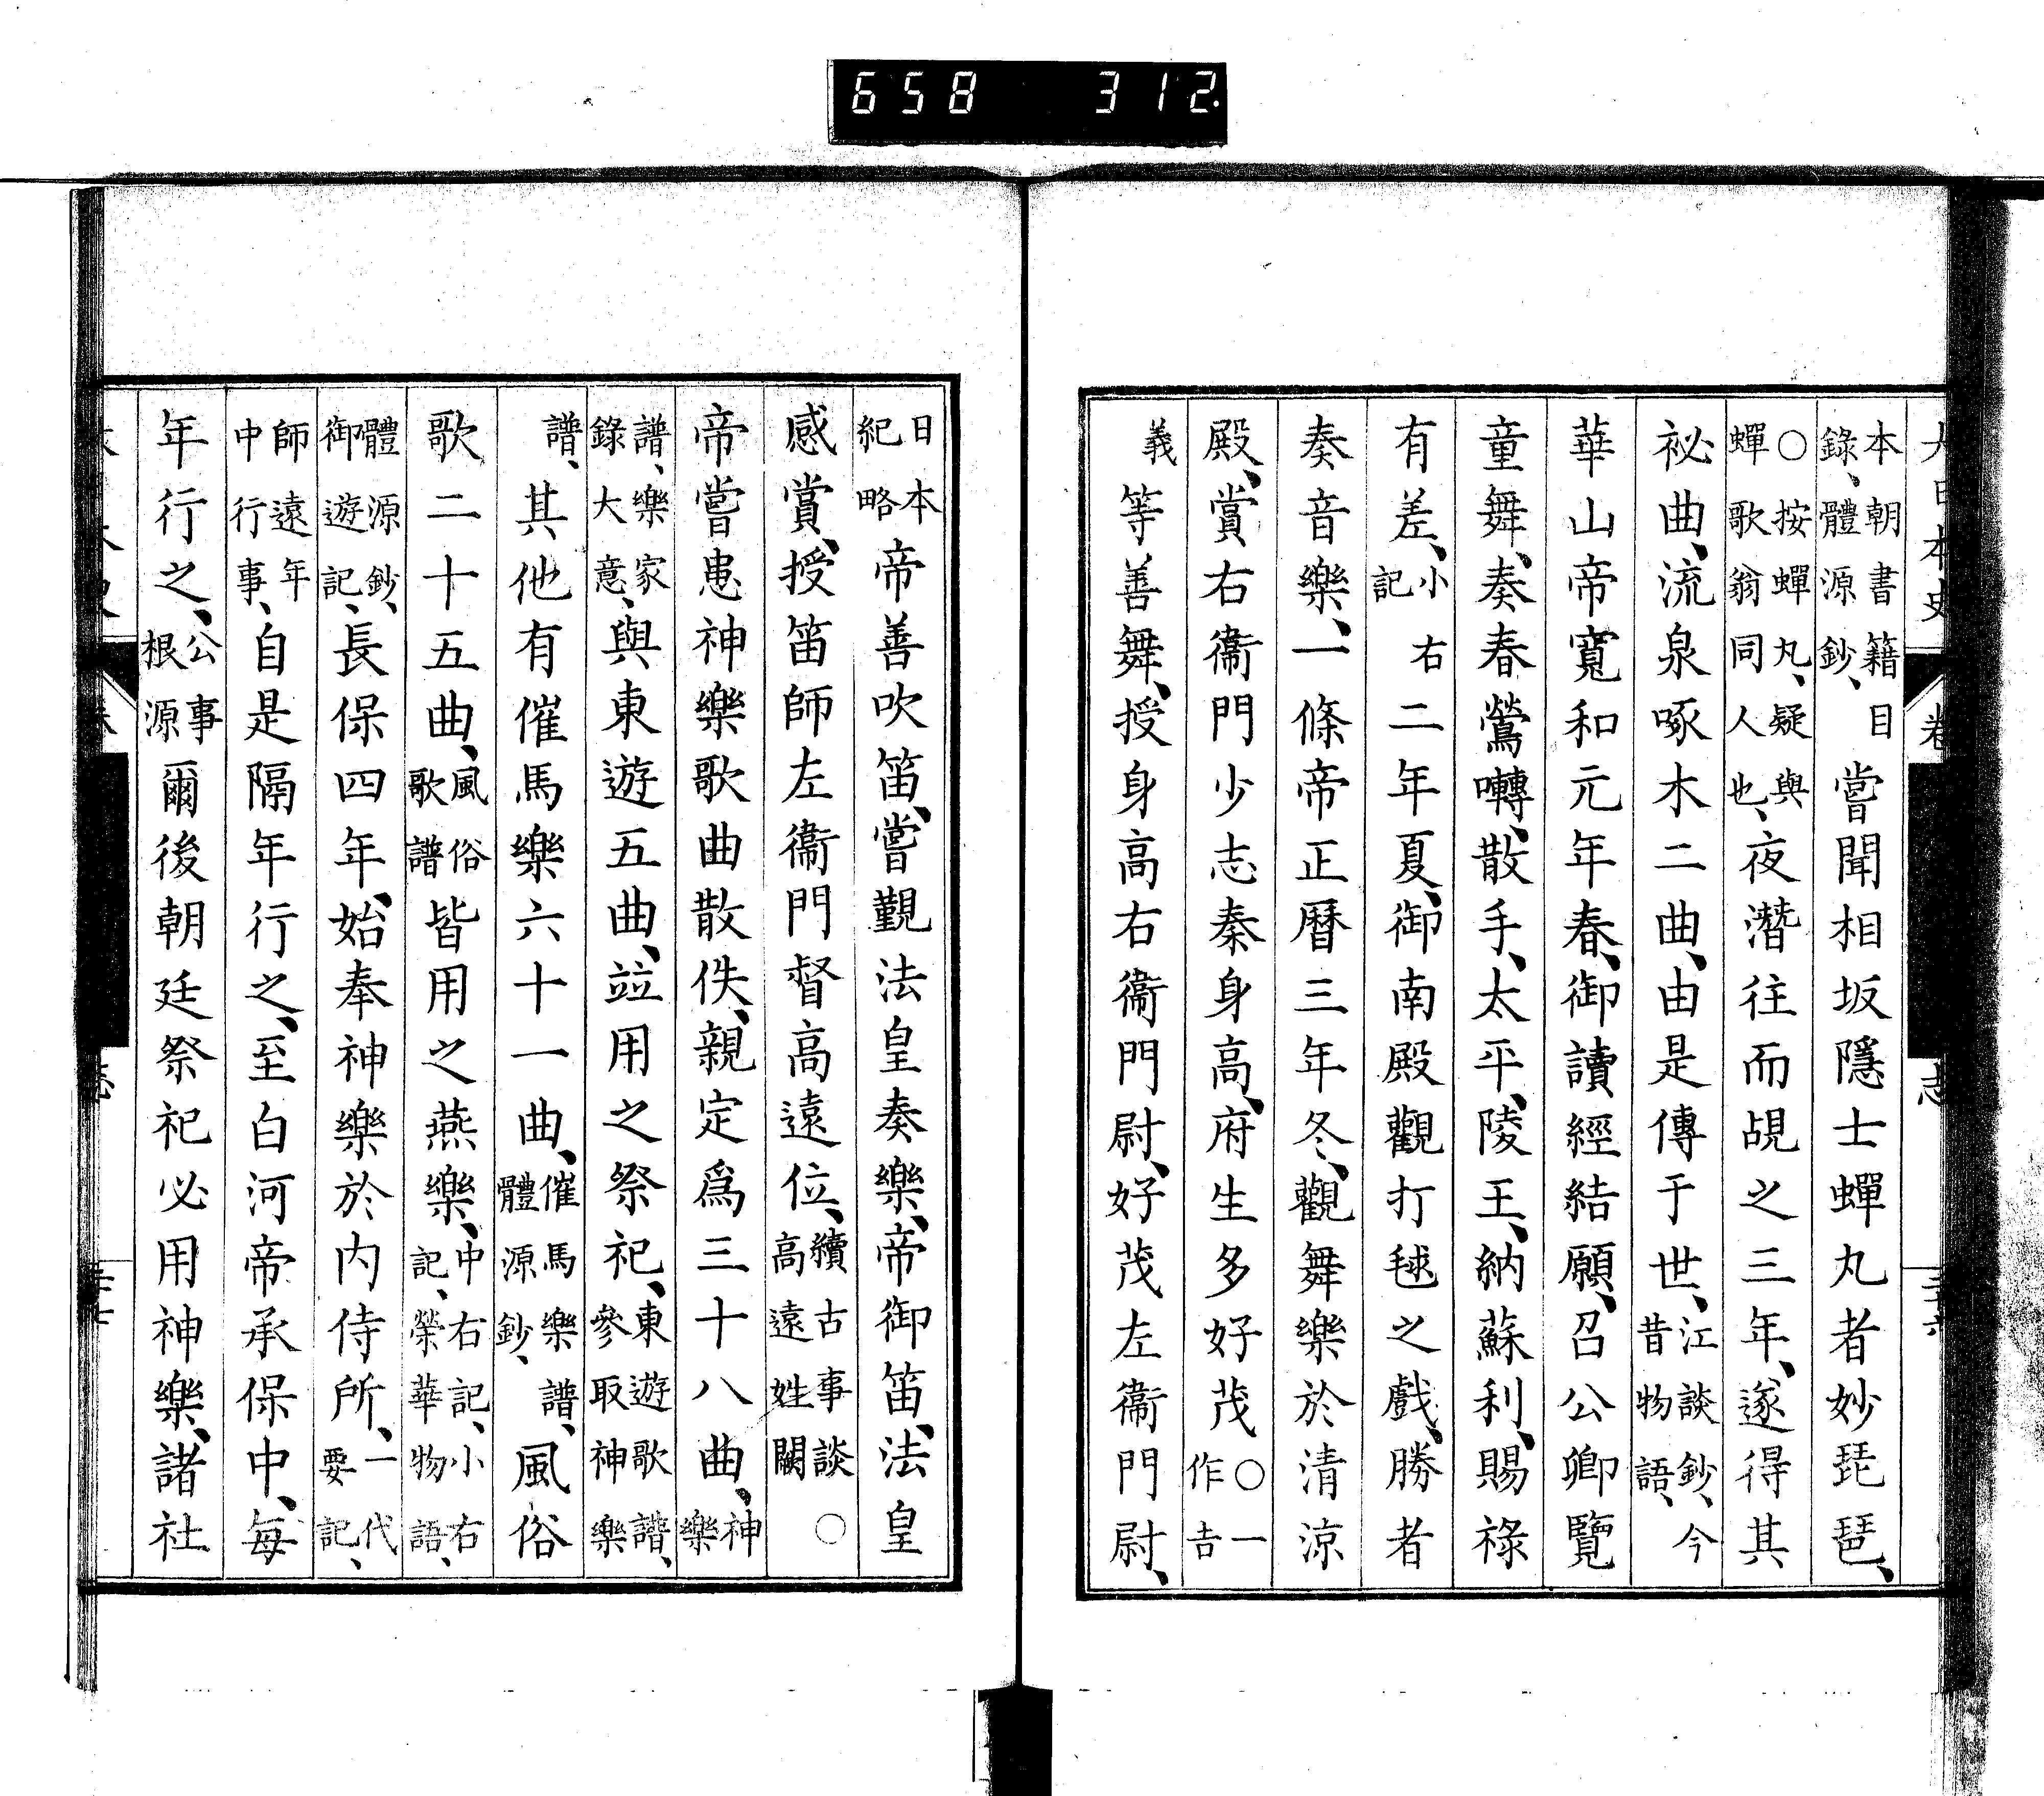 658 312.
大日本史 卷 志
本朝書籍目錄、體源鈔、嘗聞相坂隱士蟬丸者妙琵琶、
○按蟬丸、疑與蟬歌翁同人也、夜潛往而覘之三年、遂得其
祕曲、流泉啄木二曲、由是傳于世、江談鈔、今昔物語、
華山帝寬和元年春、御讀經結願、召公卿覽
童舞、奏春鶯囀、散手、太平、陵王、納蘇利、賜祿
有差、小右記二年夏、御南殿觀打毬之戲、勝者
奏音樂、一條帝正曆三年冬、觀舞樂於清涼
殿、賞右衞門少志秦身高、府生多好茂○一作吉
義等善舞、授身高右衞門尉、好茂左衞門尉、
日本紀略帝善吹笛、嘗覲法皇奏樂、帝御笛、法皇
感賞、授笛師左衞門督高遠位、續古事談○高遠姓闕
帝嘗患神樂歌曲散佚、親定爲三十八曲、神樂
譜、樂家錄大意、與東遊五曲、竝用之祭祀、東遊歌譜、參取神樂
譜、其他有催馬樂六十一曲、催馬樂譜、體源鈔、風俗
歌二十五曲、風俗歌譜皆用之燕樂、中右記、小右記、榮華物語、
體源鈔、御遊記、長保四年、始奉神樂於内侍所、一代要記、
師遠年中行事、自是隔年行之、至白河帝承保中、每
年行之、公事根源爾後朝廷祭祀必用神樂、諸社